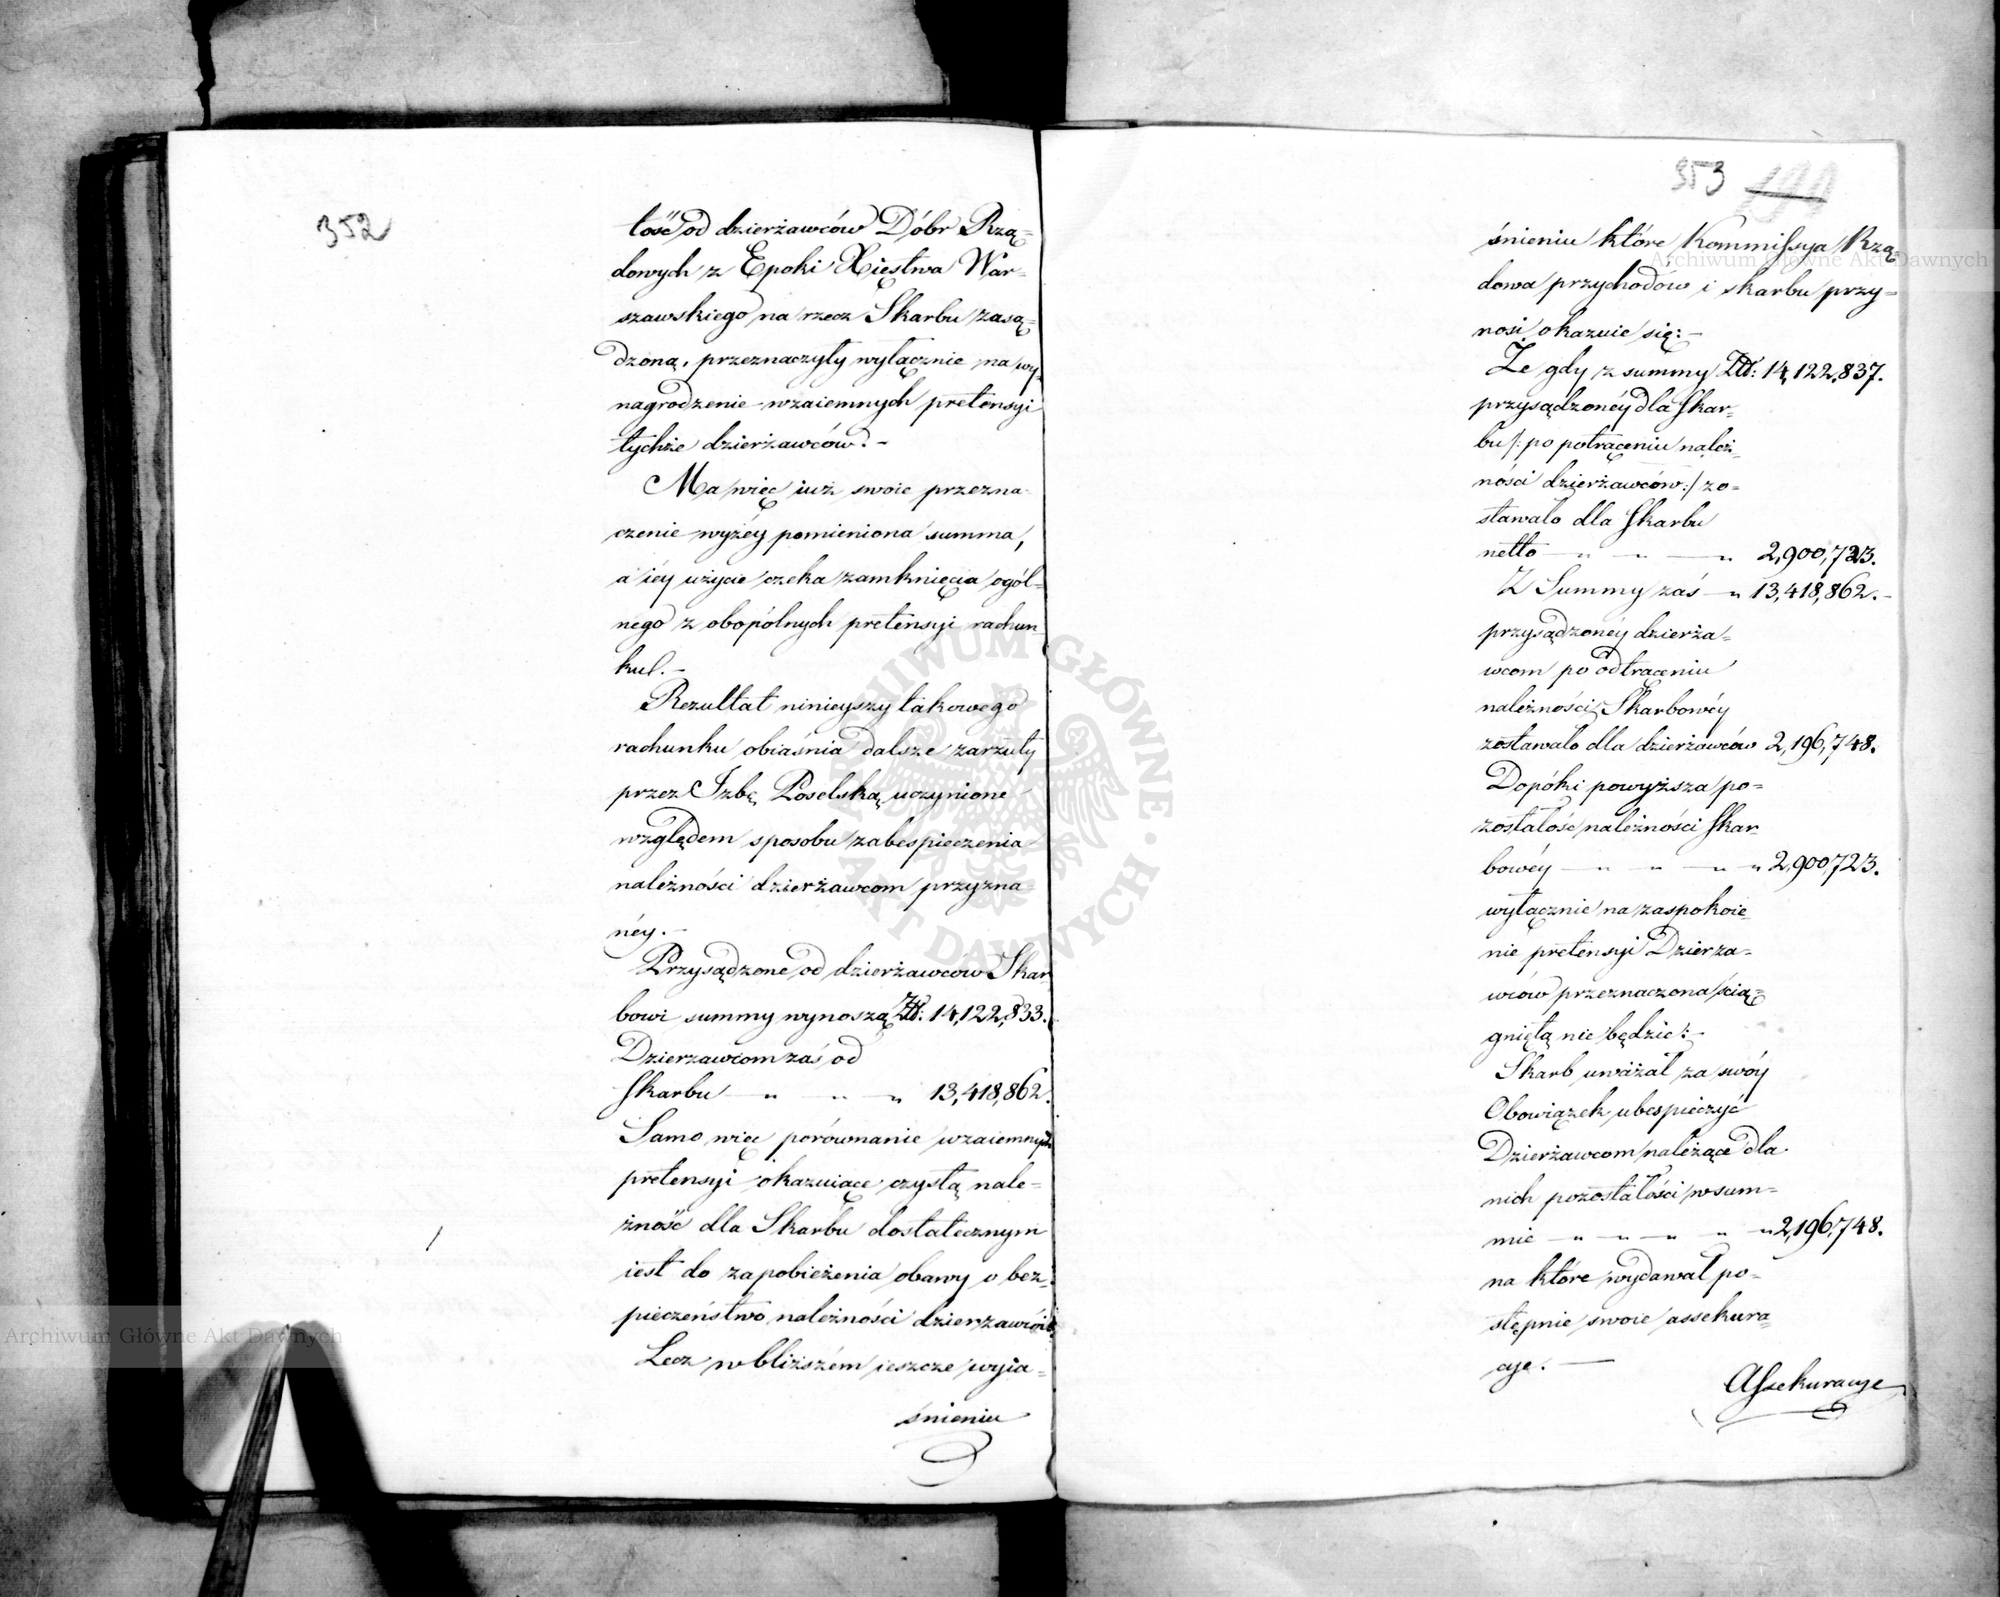 352
łość od dzierżawców Dóbr Rzą=
dowych z Epoki Xięstwa War=
szawskiego na rzecz Skarbu zasą=
dzoną, przeznaczyły wyłącznie na wy=
nagrodzenie wzaiemnych pretensyi
tychże dzierżawców. -
Ma więc iuż swoie przezna=
czenie wyżéy pomieniona summa,
a iéy użycie czeka zamknięcia ogól=
nego z obopólnych pretensyi rachun
ku. -
Rezultat ninieyszy takowego
rachunku obiaśnia dalsze zarzuty
przez Izbę Poselską uczynione
względem sposobu zabespieczenia
należności dzierżawcom przyzna=
néy. -
Przysądzone od dzierżawców Skar
bowi summy wynoszą Złł: 14,122,833.
Dzierzawcom zaś od
Skarbu — „ — „ — „ 13,418,862.
Samo więc porównanie wzaiemnych
pretensyi okazuiące czystą nale=
żność dla Skarbu dostatecznym
iest do zapobieżenia obawy o bez=
pieczeństwo należności dzierzawców
Lecz w bliższém ieszcze wyia=
śnieniu
353
śnieniu które Kommissya Rzą=
dowa przychodów i skarbu przy=
nosi okazuie się: -
Że gdy z summy Złł: 14,122,837.
przysądzonéy dla Skar=
bu /: po potrąceniu należ=
ności dzierżawców :/ zo=
stawało dla Skarbu
netto — „ — „ — „ 2,900,723.
Z Summy zaś — „ 13,418,862. -
przysądzonéy dzierża=
wcom po odtrąceniu
należności Skarbowéy
zostawało dla dzierżawców 2,196,748.
Dopóki powyższa po=
zostałość należności Skar=
bowéy — „ — „ — „ „ 2,900,723.
wyłącznie na zaspokoie=
nie pretensyi Dzierza=
wców przeznaczona ścią=
gniętą nie będzie: -
Skarb uważał za swóy
Obowiązek ubespieczyć
Dzierżawcom należące dla
nich pozostałości w sum=
mie — „ — „ — „ — „ „ 2,196,748.
na które wydawał po=
stępnie swoie assekura=
cye. —
Assekuracye
ARCHIWUM GŁÓWNE AKT DAWNYCH
Archiwum Główne Akt Dawnych
Archiwum Główne Akt Dawnych